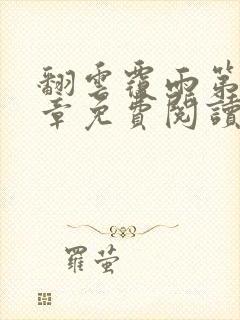 翻雲覆雨第
章免費閱讀
羅萤